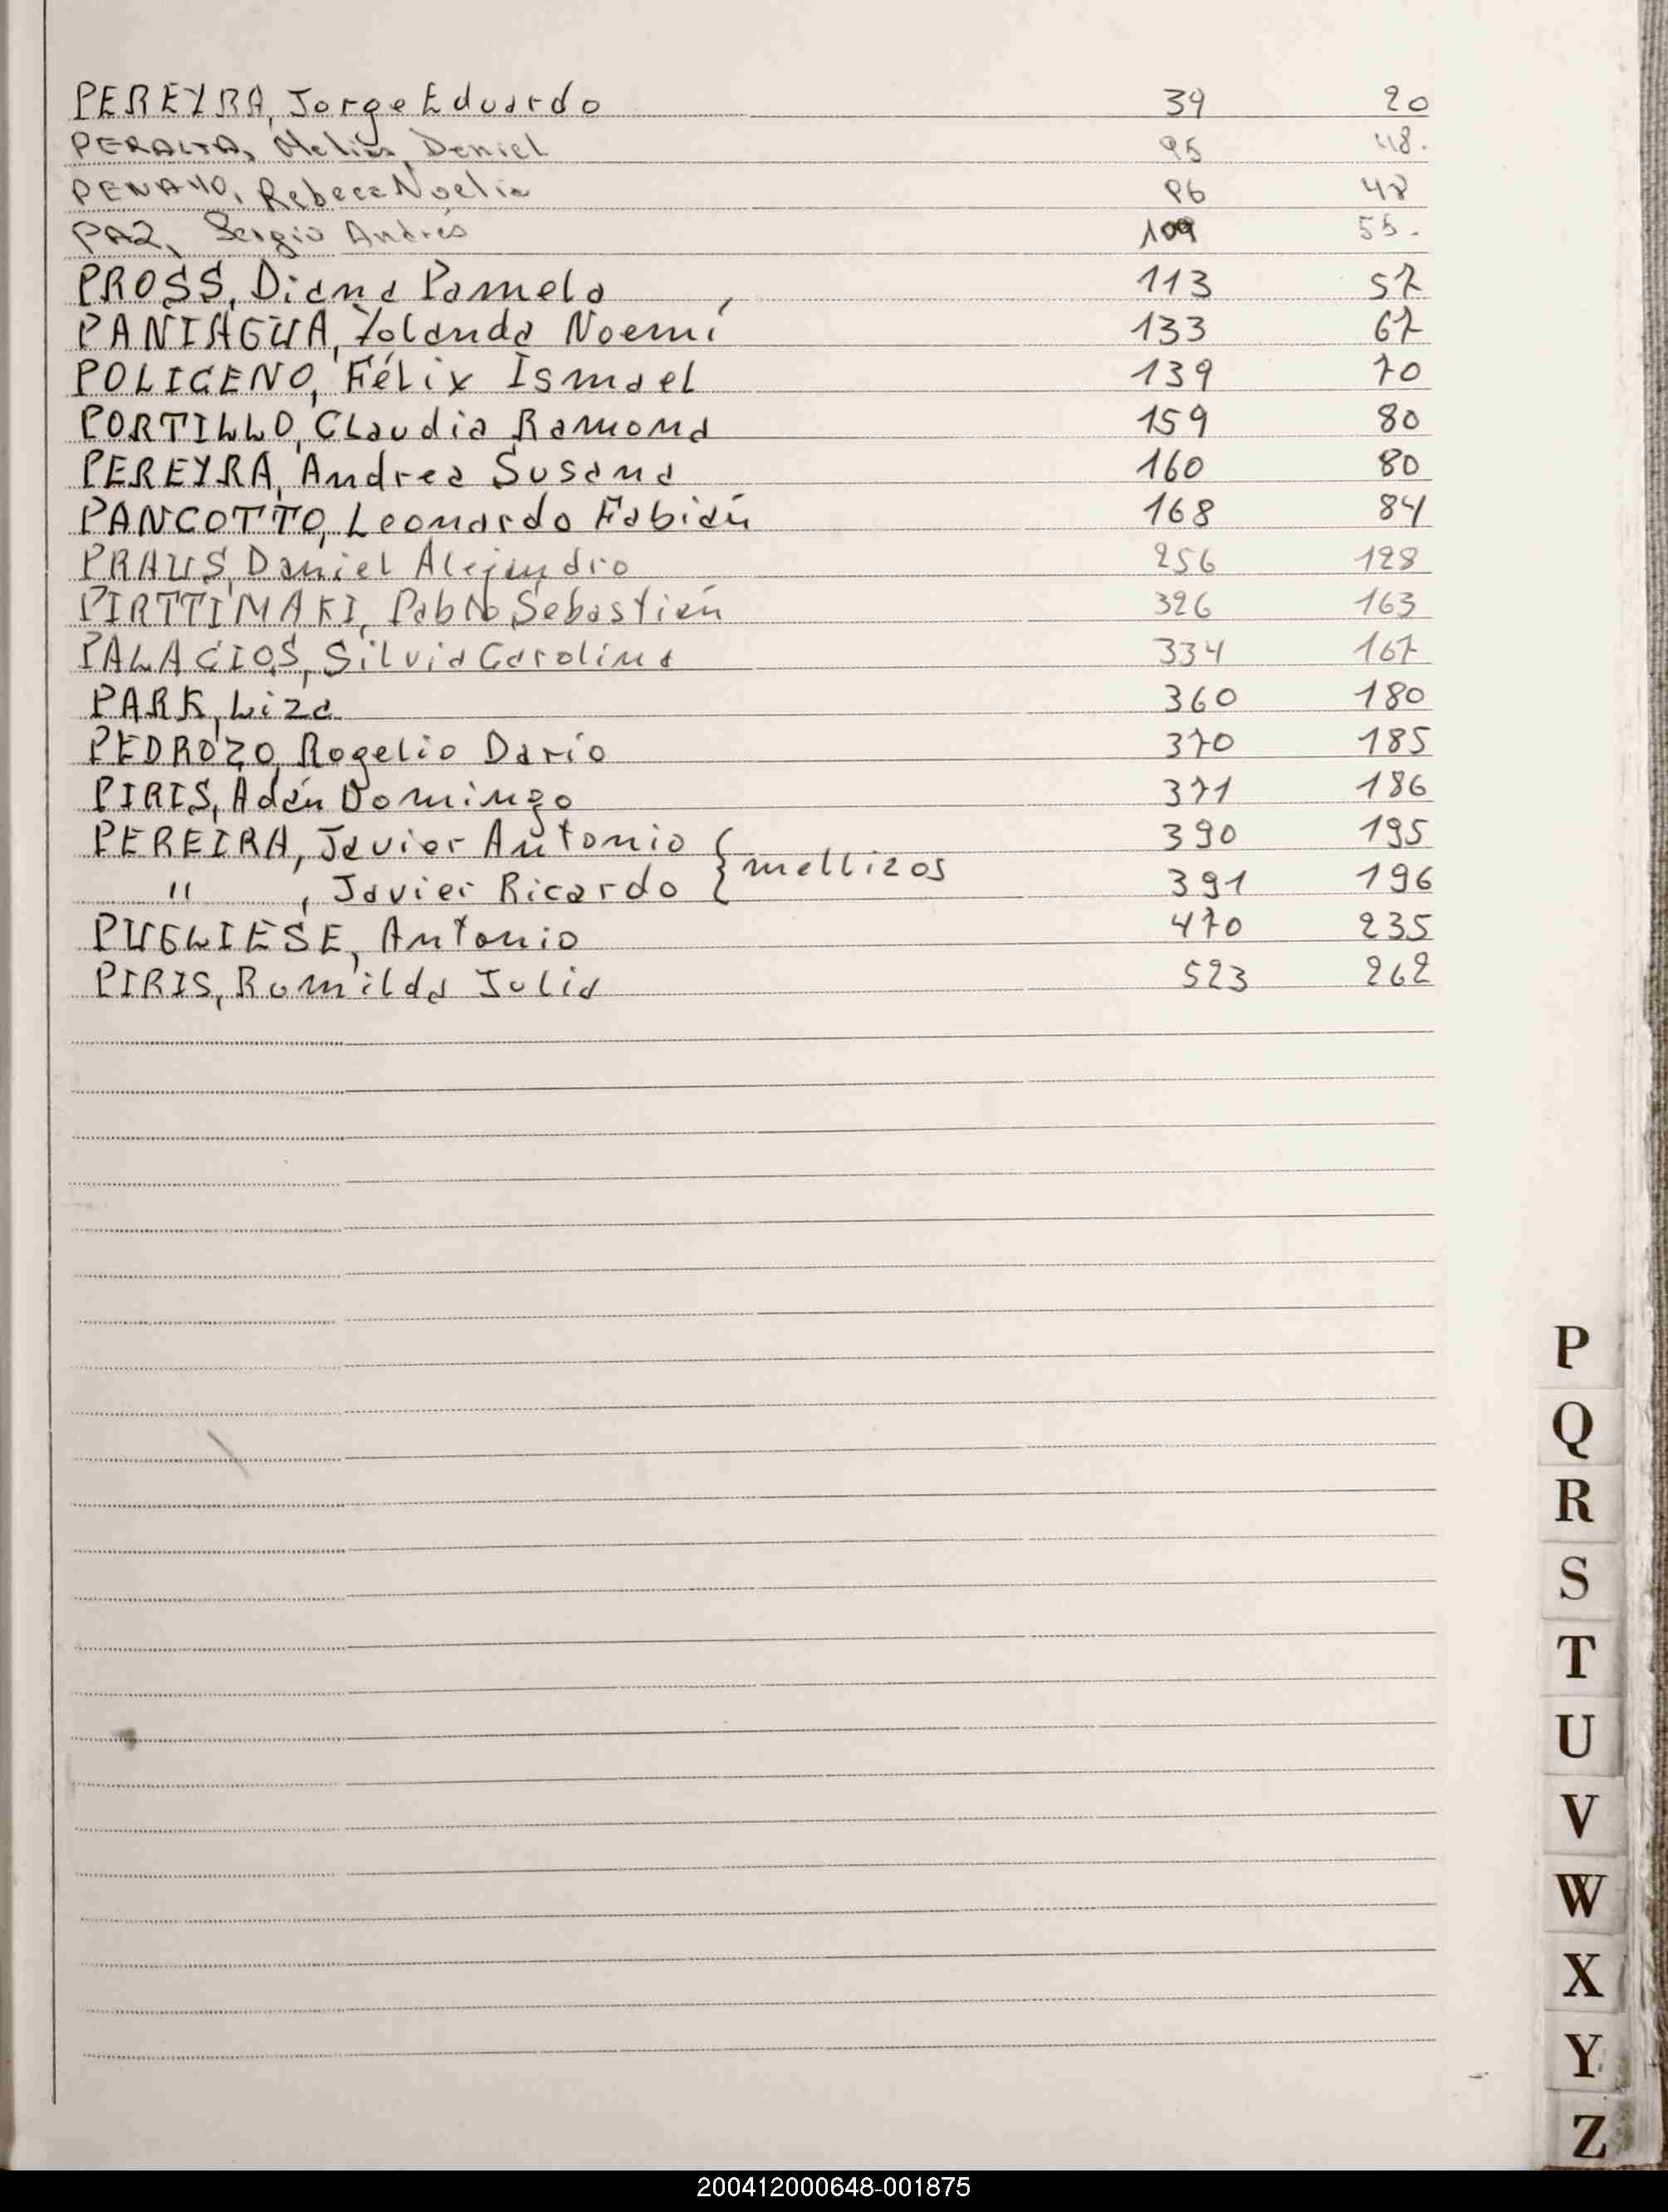 PEREYRA, Jorge Eduardo 39 20
PERALTA, Daniel 95 48.
PENAYO, Rebeca Noelia 96 48
PAZ, Sergio Andrés 109 55.
PROSS, Diana Pamela 113 57
PANIAGUA, Yolanda Noemí 133 67
POLICENO, Félix Ismael 139 70
PORTILLO, Claudia Ramona 159 80
PEREYRA, Andrea Susana 160 80
PANCOTTO, Leonardo Fabián 168 84
PRAUS, Daniel Alejandro 256 128
PIRTTIMAKI, Pablo Sebastián 326 163
PALACIOS, Silvia Carolina 334 167
PARK, Liza 360 180
PEDROZO, Rogelio Darío 370 185
PIRIS, Adán Domingo 371 186
PEREIRA, Javier Antonio 390 195
{ mellizos
" , Javier Ricardo 391 196
PUGLIESE, Antonio 470 235
PIRIS, Romilda Julia 523 262
P
Q
R
S
T
U
V
W
X
Y
Z
200412000648-001875